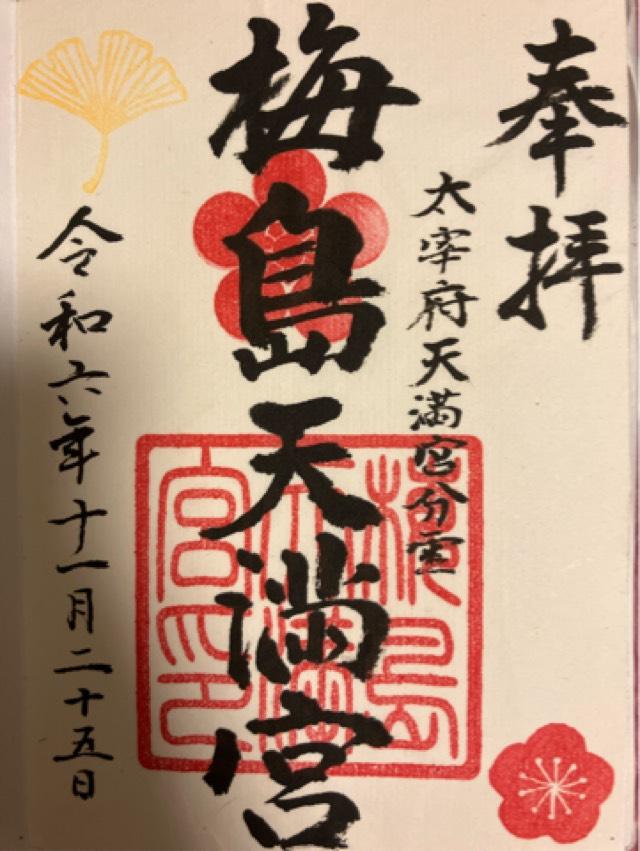 奉拝
太宰府天満宮分霊
梅島天満宮
梅島
天満
宮印
令和六年十一月二十五日